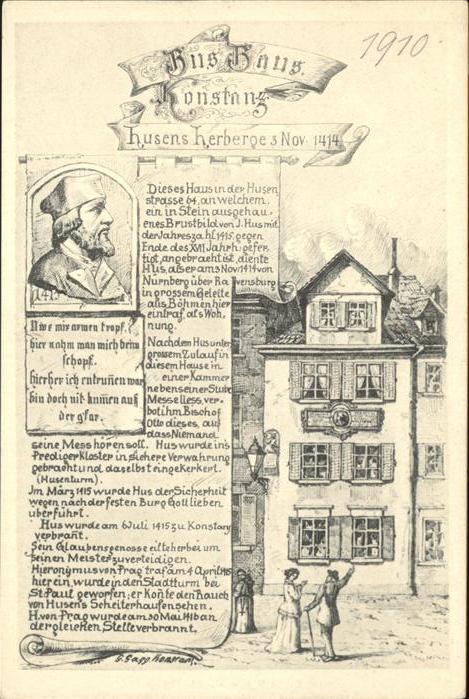 1910.
Hus Haus.
Konstanz
Husens Herberge 3 Nov. 1414.
Dieses Haus in der Husen
strasse 64, an welchem
ein in Stein ausgehau-
enes Brustbild von J. Hus mit
der Jahreszahl 1415, gegen
Ende des XVI Jahrh. gefer
tigt, angebracht ist, diente
Hus, als er am 3 Nov 1414 von
Nürnberg über Ra vensburg
in grossem Geleite
aus Böhmen hier
eintraf, als Woh
nung.
Nachdem Hus unter
grossem Zulauf in
diesem Hause in
einer Kammer
neben seiner Stube
Messe lless, ver-
bot ihm Bischof
Otto dieses, auf
dass Niemand
seine Mess hören soll. Hus wurde ins
Predigerkloster in sichere Verwahrung
gebracht und daselbst eingekerkert.
(Husenturm).
Im März 1415 wurde Hus der Sicherheit
wegen nach der festen Burg Gottlieben
überführt.
Hus wurde am 6 Juli 1415 zu Konstanz
verbrant.
Sein Glaubensgenosse eilte herbei um
seinen Meister zu verteidigen.
Hieronijmus von Prag traf am 4 April 1415
hier ein, wurde in den Stadtturm bei
St. Paul geworfen; er konte den Rauch
von Husen's Scheiterhaufen sehen.
H. von Prag wurde am 30 Mai 1416 an
der gleichen Stelle verbrannt.
1415
O we mir armen tropf!
hier nahm man mich beim
schopf.
hierher ich entrunnen war
bin doch nit kumen aus
der gfar.